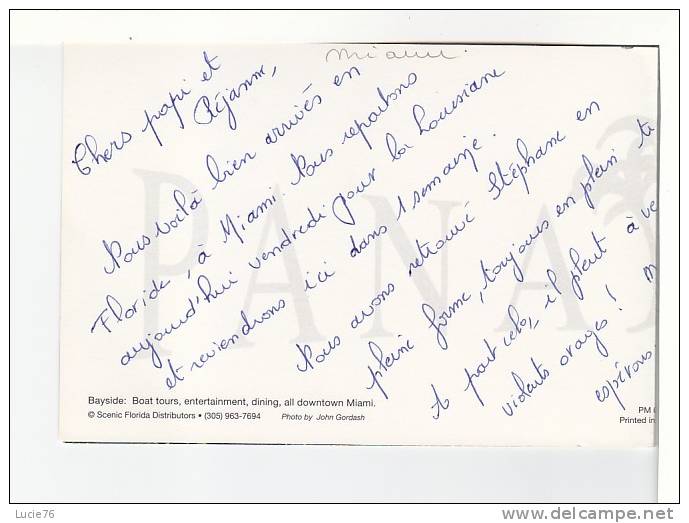 Miami.
Chers papi et
Réjanne,
Nous voilà bien arrivés en
Floride, à Miami. Nous repartons
aujourd'hui vendredi pour la Louisiane
et reviendrons ici dans 1 semaine.
Nous avons retrouvé Stéphane en
pleine forme, toujours en plein
A part cela, il pleut à
violents orages!
espérons
PANA
Bayside: Boat tours, entertainment, dining, all downtown Miami.
© Scenic Florida Distributors • (305) 963-7694 Photo by John Gordash
PM
Printed in
Lucie76
www.delcampe.net